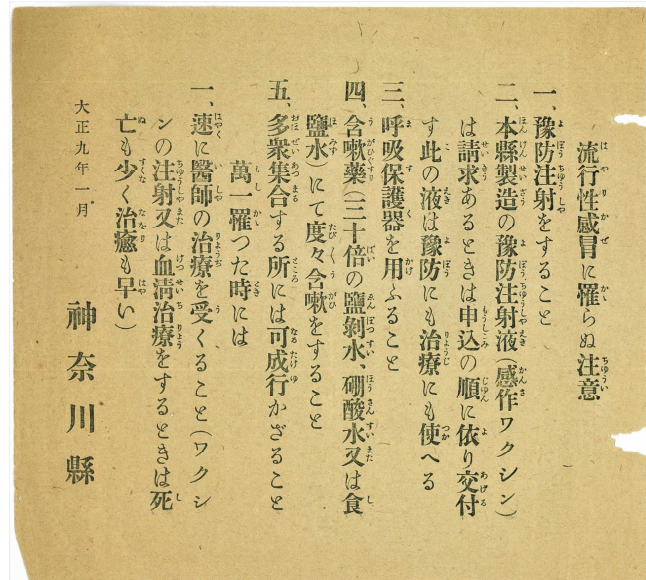 流行性感冒に罹らぬ注意
一、豫防注射をすること
二、本縣製造の豫防注射液(感作ワクシン)
は請求あるときは申込の順に依り交付
す此の液は豫防にも治療にも使へる
三、呼吸保護器を用ふること
四、含嗽藥(三十倍の鹽剝水、硼酸水又は食
鹽水)にて度々含嗽をすること
五、多衆集合する所には可成行かざること
萬一罹つた時には
一、速に醫師の治療を受くること(ワクシ
ンの注射又は血淸治療をするときは死
亡も少く治癒も早い)
大正九年一月
神奈川縣